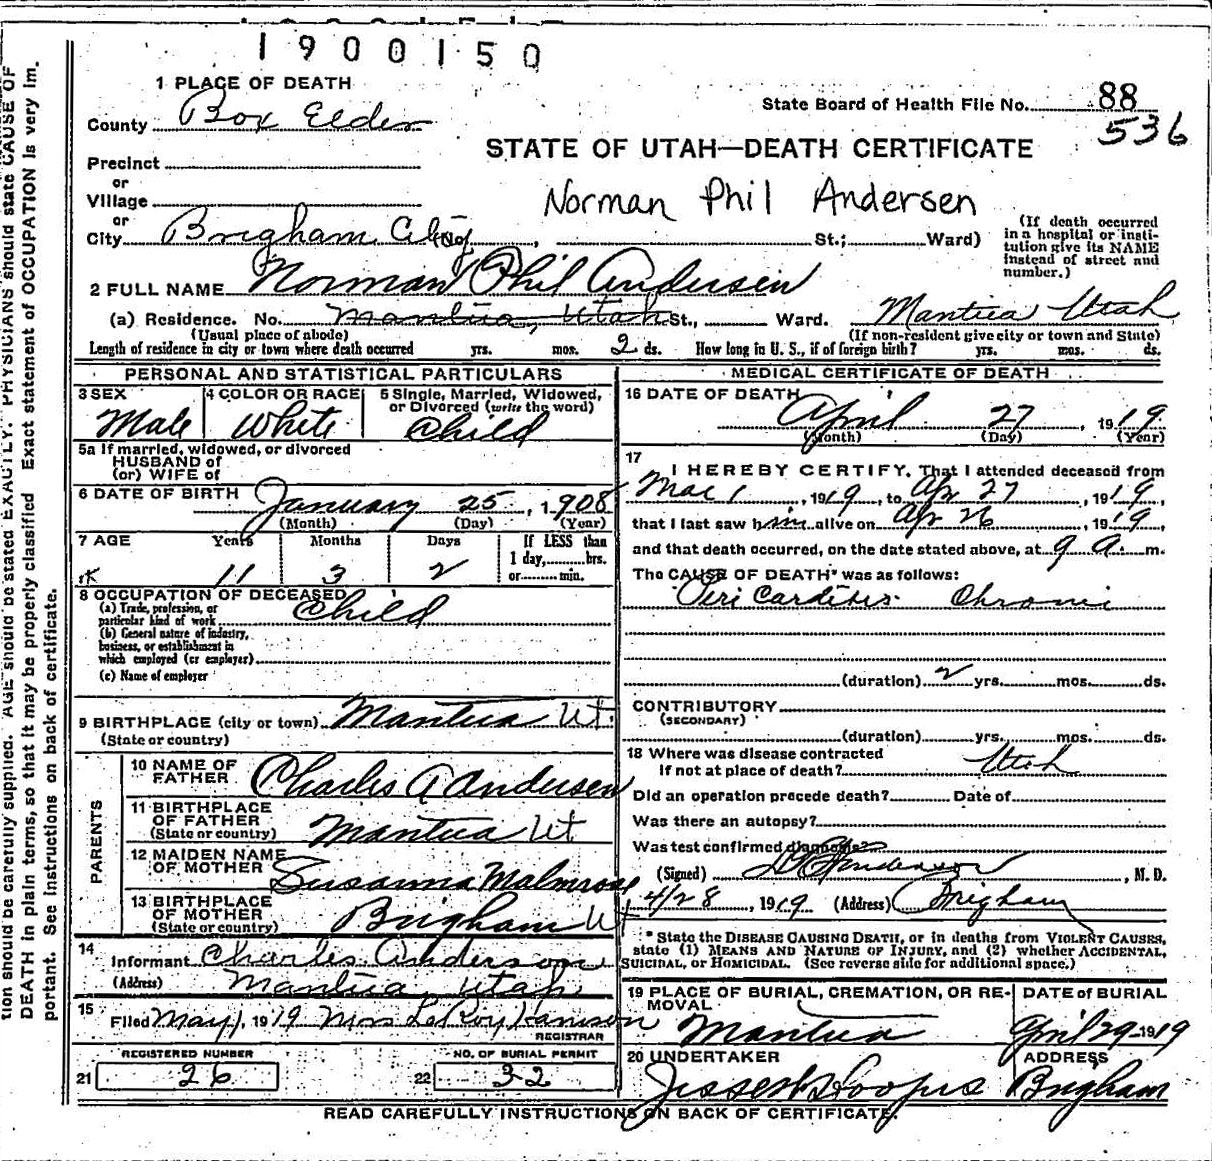 1900150
1 PLACE OF DEATH
County Box Elder
State Board of Health File No. 88
536
Precinct
or
Village
or
City Brigham City (No. , St.; Ward)
STATE OF UTAH—DEATH CERTIFICATE
Norman Phil Andersen
(If death occurred
in a hospital or insti-
tution give its NAME
instead of street and
number.)
2 FULL NAME Norman Phil Andersen
(a) Residence. No. Mantua, Utah St., Ward. Mantua Utah
(Usual place of abode) (If non-resident give city or town and State)
Length of residence in city or town where death occurred yrs. mos. 2 ds. How long in U. S., if of foreign birth? yrs. mos. ds.
PERSONAL AND STATISTICAL PARTICULARS
3 SEX
Male
4 COLOR OR RACE
White
5 Single, Married, Widowed,
or Divorced (write the word)
Child
5a If married, widowed, or divorced
HUSBAND of
(or) WIFE of
6 DATE OF BIRTH January 25, 1908
(Month) (Day) (Year)
7 AGE Years Months Days
11 3 2
If LESS than
1 day, hrs.
or min.
8 OCCUPATION OF DECEASED
(a) Trade, profession, or
particular kind of work Child
(b) General nature of industry,
business, or establishment in
which employed (or employer)
(c) Name of employer
9 BIRTHPLACE (city or town) Mantua Ut.
(State or country)
PARENTS
10 NAME OF
FATHER Charles A Andersen
11 BIRTHPLACE
OF FATHER
(State or country) Mantua Ut
12 MAIDEN NAME
OF MOTHER Susanna Malmrose
13 BIRTHPLACE
OF MOTHER
(State or country) Brigham Ut
14
Informant Charles Anderson
(Address) Mantua, Utah
15
Filed May 1, 1919 Mrs LeRoy Hanson
REGISTRAR
REGISTERED NUMBER
21 26
NO. OF BURIAL PERMIT
22 32
MEDICAL CERTIFICATE OF DEATH
16 DATE OF DEATH
April 27, 1919
(Month) (Day) (Year)
17
I HEREBY CERTIFY, That I attended deceased from
Mar 1, 1919, to Apr 27, 1919,
that I last saw him alive on Apr 26, 1919,
and that death occurred, on the date stated above, at 9 a. m.
The CAUSE OF DEATH* was as follows:
Peri Carditis. Chronic
(duration) 2 yrs. mos. ds.
CONTRIBUTORY
(SECONDARY)
(duration) yrs. mos. ds.
18 Where was disease contracted
If not at place of death? Utah
Did an operation precede death? Date of
Was there an autopsy?
Was test confirmed diagnosis
(Signed) , M. D.
4/28, 1919 (Address) Brigham
* State the DISEASE CAUSING DEATH, or in deaths from VIOLENT CAUSES,
state (1) MEANS AND NATURE OF INJURY, and (2) whether ACCIDENTAL,
SUICIDAL, or HOMICIDAL. (See reverse side for additional space.)
19 PLACE OF BURIAL, CREMATION, OR RE-
MOVAL
Mantua
DATE of BURIAL
April 29 1919
20 UNDERTAKER
ADDRESS
Brigham
READ CAREFULLY INSTRUCTIONS ON BACK OF CERTIFICATE.
tion should be carefully supplied. AGE should be stated EXACTLY. PHYSICIANS should state CAUSE OF
DEATH in plain terms, so that it may be properly classified. Exact statement of OCCUPATION is very im-
portant. See instructions on back of certificate.